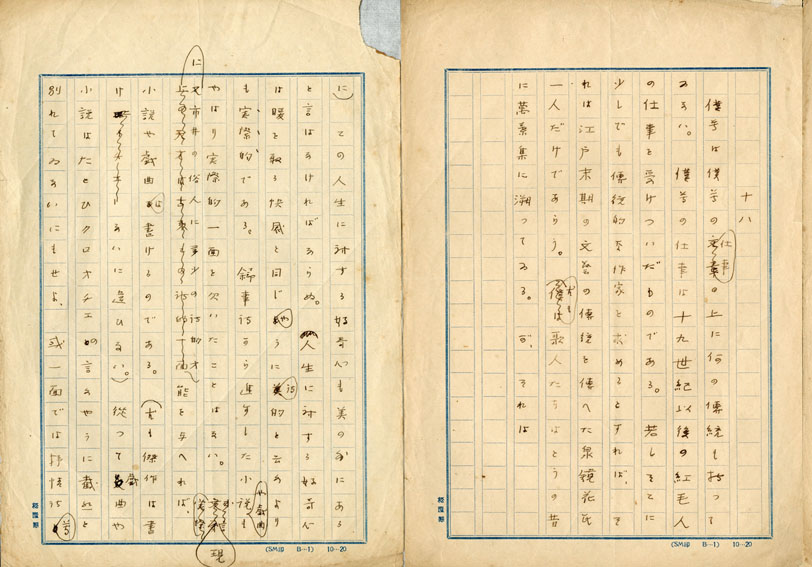 十八
僕等は僕等の仕事の上に何の傳統も持つて
ゐない。僕等の仕事は十九世紀以後の紅毛人
の仕事を受けついだものである。若しそこに
少しでも傳統的な作家を求めるとすれば、そ
れは江戸末期の文藝の傳統を傳へた泉鏡花氏
一人だけであらう。尤も歌人たちはとうの昔
に萬葉集に溯つてゐる。が、それは
(SM印 B―1) 10―20
に)この人生に対する好奇心も美の為にある
と言はなければならぬ。人生に対する好奇心
は暖を取る快感と同じやうに詩的と云ふより
も実際的である。叙事詩から進歩した小説や戯曲も
やはり実際的一面を欠いたことはない。
に市井の俗人に多少の詩的才能を与へれば、
小説や戯曲は書けるのである。(尤も傑作は書
けないに違ひない。)従つて戯曲や
小説はたとひクロオチエの言ふやうに截然と
別れてゐないにもせよ、或一面では抒情詩等
(SM印 B―1) 10―20